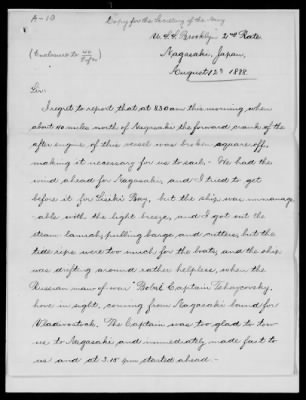 A-10
Copy for the Secretary of the Navy
U.S.S. Brooklyn 2nd Rate
(Enclosure to
Nagasaki, Japan,
August 12th 1888.
Sir:
I regret to report that at 8.30 am this morning, when
about 40 miles north of Nagasaki the forward crank of the
after engine of this vessel was broken square off,
making it necessary for us to sail. We had the
wind ahead for Nagasaki, and I tried to get
before it for Bay, but the ship was unmanage-
able with the light breeze, and I got out the
steam launch, pulling barge, and cutters, but the
tide rips were too much for the boats, and the ship
was drifting around rather helpless, when the
Russian man of war Captain
hove in sight, coming from Nagasaki bound for
Vladivostock. The Captain was too glad to tow
us to Nagasaki and immediately made fast to
us and at 3.15 pm started ahead.